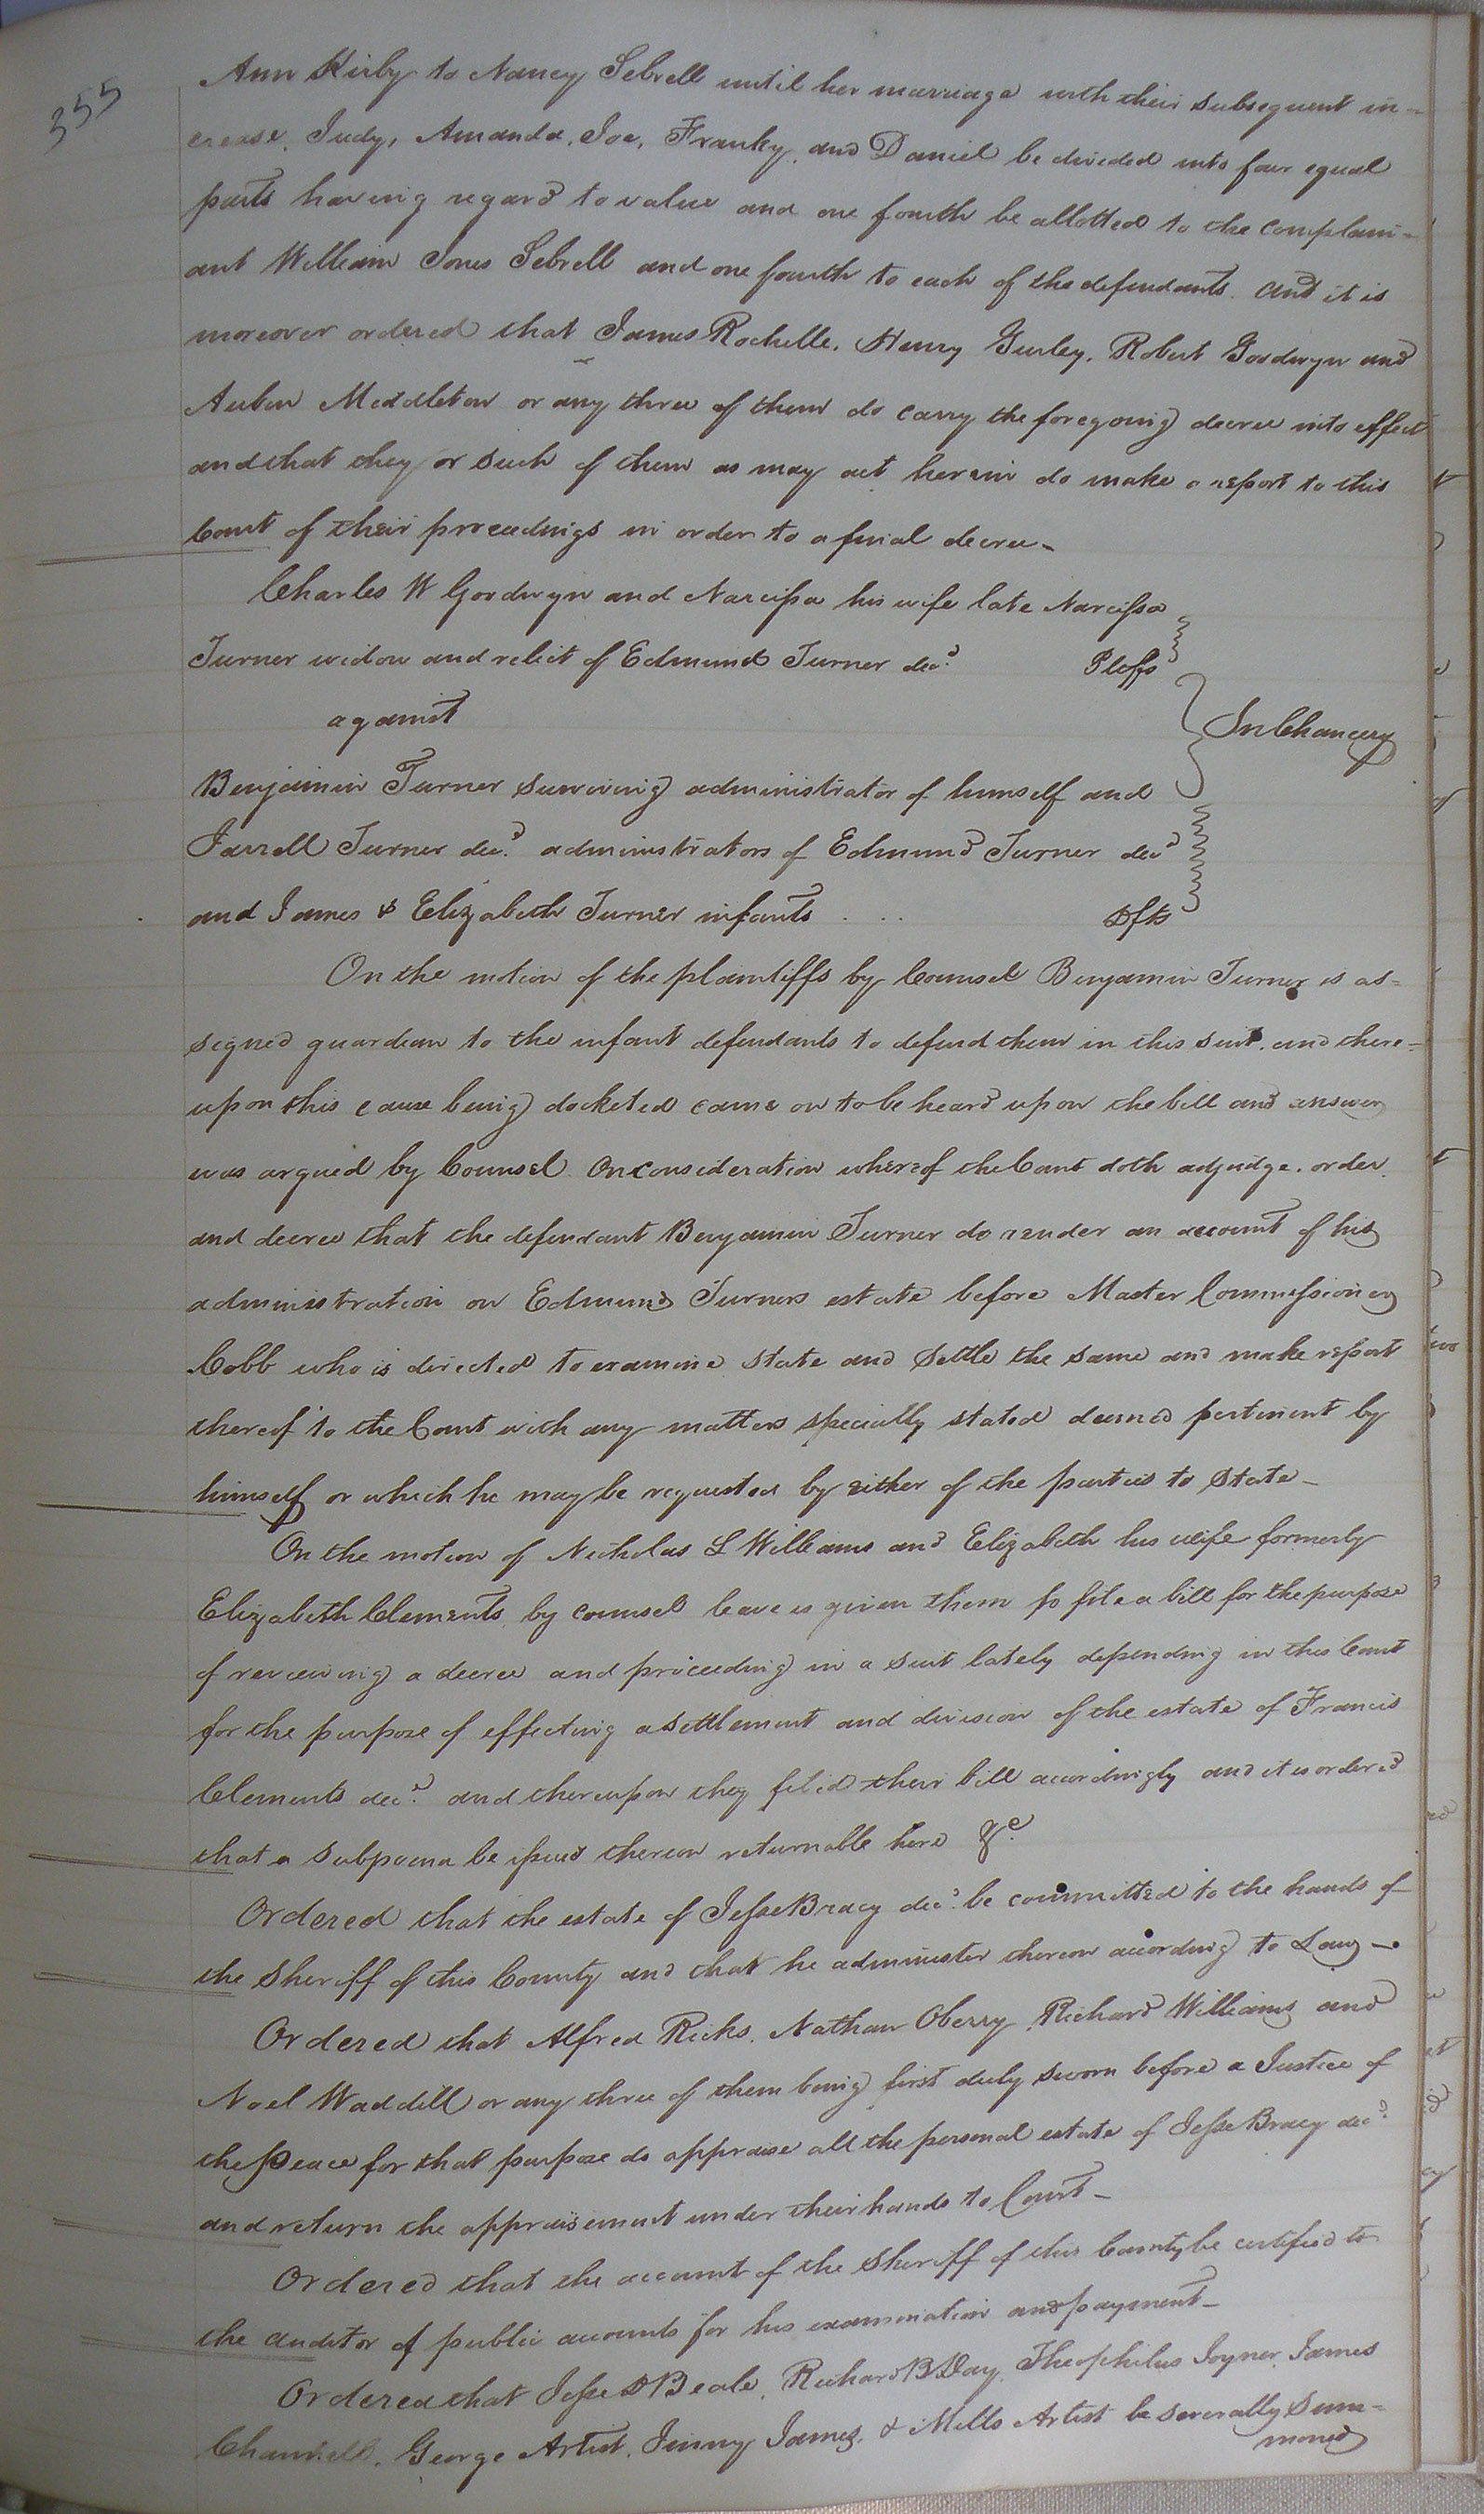 355
Ann Kirby to Nancy Sebrell until her marriage with their subsequent in-
crease, Judy, Amanda, Joe, Franky, and Daniel be divided into four equal
parts having regard to value and one fourth be allotted to the complain-
ant William Jones Sebrell and one fourth to each of the defendants. And it is
moreover ordered that James Rochelle, Henry Gurley, Robert Goodwyn and
Auben Middleton or any three of them do carry the foregoing decree into effect
and that they or such of them as may act herein do make a report to this
Court of their proceedings in order to a final decree-
Charles W Goodwyn and Narcissa his wife late Narcissa
Turner widow and relict of Edmund Turner decd. Pltffs
against
In Chancery
Benjamin Turner surviving administrator of himself and
Jarrell Turner decd. administrators of Edmund Turner decd
and James & Elizabeth Turner infants . . . Dfts
On the motion of the plaintiffs by Counsel Benjamin Turner is as=
signed guardian to the infant defendants to defend them in this suit. and there=
upon this cause being docketed came on to be heard upon the bill and answer
was argued by Counsel. On consideration whereof the Court doth adjudge. order.
and decree that the defendant Benjamin Turner do render an account of his
administration on Edmund Turners estate before Master Commissioner
Cobb who is directed to examine state and settle the same and make report
thereof to the Court with any matters specially stated deemed pertinent by
himself or which he may be requested by either of the parties to State-
On the motion of Nicholas L Williams and Elizabeth his wife formerly
Elizabeth Clements by counsel leave is given them to file a bill for the purpose
of reviewing a decree and proceeding in a suit lately depending in this Court
for the purpose of effecting a settlement and division of the estate of Francis
Clements decd. and thereupon they filed their bill accordingly and it is ordered
that a subpoena be issued thereon returnable here &c.
Ordered that the estate of Jesse Bracy decd. be committed to the hands of
the Sheriff of this County and that he administer thereon according to Law-
Ordered that Alfred Ricks, Nathan Oberry, Richard Williams and
Noel Waddill or any three of them being first duly sworn before a Justice of
the peace for that purpose do appraise all the personal estate of Jesse Bracy decd.
and return the appraisement under their hands to Court-
Ordered that the account of the Sheriff of this County be certified to
the auditor of public accounts for his examination and payment-
Ordered that Jesse D Beale, Richard B Day, Theophilus Joyner, James
Channell, George Artist, Jinny James, & Mills Artist be severally sum=
moned